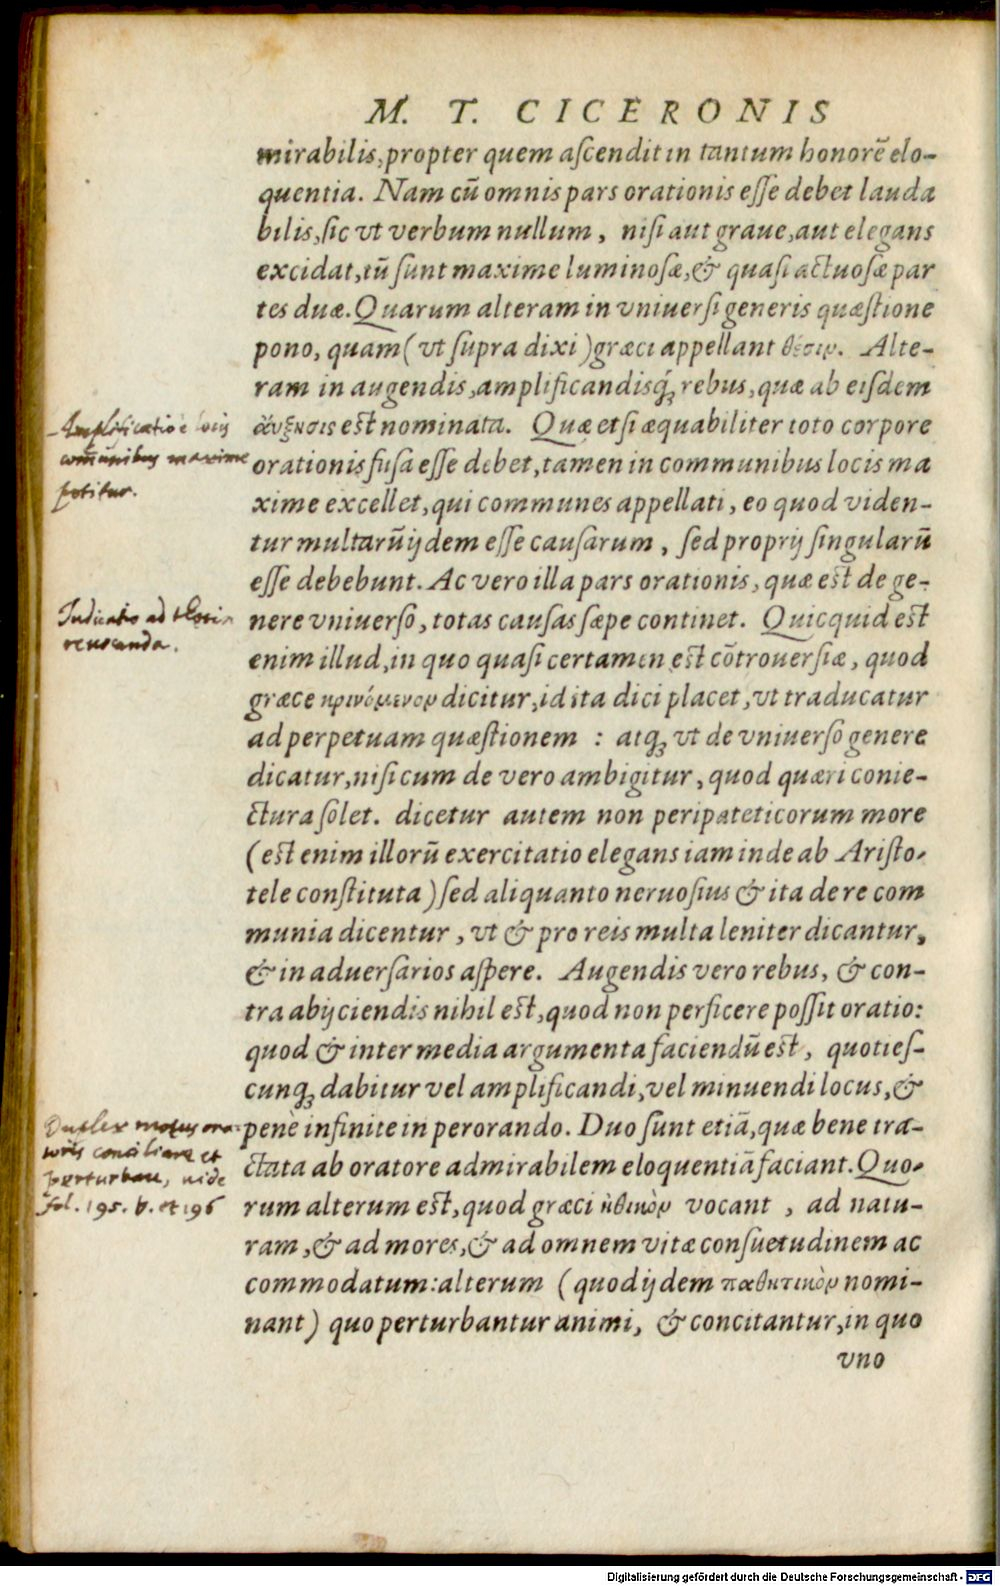 M. T. CICERONIS
mirabilis, propter quem aſcendit in tantum honorē elo-
quentia. Nam cū omnis pars orationis eſſe debet lauda
bilis, ſic vt verbum nullum, niſi aut graue, aut elegans
excidat, tū ſunt maxime luminoſæ, & quaſi actuoſæ par
tes duæ. Quarum alteram in vniuerſi generis quæſtione
pono, quam (vt ſupra dixi) græci appellant θέσιν. Alte-
ram in augendis, amplificandisq́ꝫ rebus, quæ ab eiſdem
ἄυξησις eſt nominata. Quæ etſi æquabiliter toto corpore
orationis fuſa eſſe debet, tamen in communibus locis ma
xime excellet, qui communes appellati, eo quod viden-
tur multarū ijdem eſſe cauſarum, ſed proprij ſingularū
eſſe debebunt. Ac vero illa pars orationis, quæ eſt de ge-
nere vniuerſo, totas cauſas ſæpe continet. Quicquid eſt
enim illud, in quo quaſi certamen eſt cōtrouerſiæ, quod
græce κρινόμενον dicitur, id ita dici placet, vt traducatur
ad perpetuam quæſtionem : atqꝫ vt de vniuerſo genere
dicatur, niſi cum de vero ambigitur, quod quæri conie-
ctura ſolet. dicetur autem non peripateticorum more
(eſt enim illorū exercitatio elegans iam inde ab Ariſto-
tele conſtituta) ſed aliquanto neruoſius & ita de re com
munia dicentur, vt & pro reis multa leniter dicantur,
& in aduerſarios aſpere. Augendis vero rebus, & con-
tra abijciendis nihil eſt, quod non perficere poſſit oratio:
quod & inter media argumenta faciendū eſt, quotieſ-
cunqꝫ dabitur vel amplificandi, vel minuendi locus, &
penè infinite in perorando. Duo ſunt etiā, quæ bene tra-
ctata ab oratore admirabilem eloquentiā faciant. Quo-
rum alterum eſt, quod græci ἠθικὸν vocant, ad natu-
ram, & ad mores, & ad omnem vitæ conſuetudinem ac
commodatum: alterum (quod ijdem παθητικὸν nomi-
nant) quo perturbantur animi, & concitantur, in quo
vno
Amplificatio è locis
com̄unibus maxime
petitur.
Iudicatio ad
reuocanda.
Duplex motus ora-
toris conciliare et
perturbare, uide
fol. 195. b. et 196
Digitalisierung gefördert durch die Deutsche Forschungsgemeinschaft - DFG